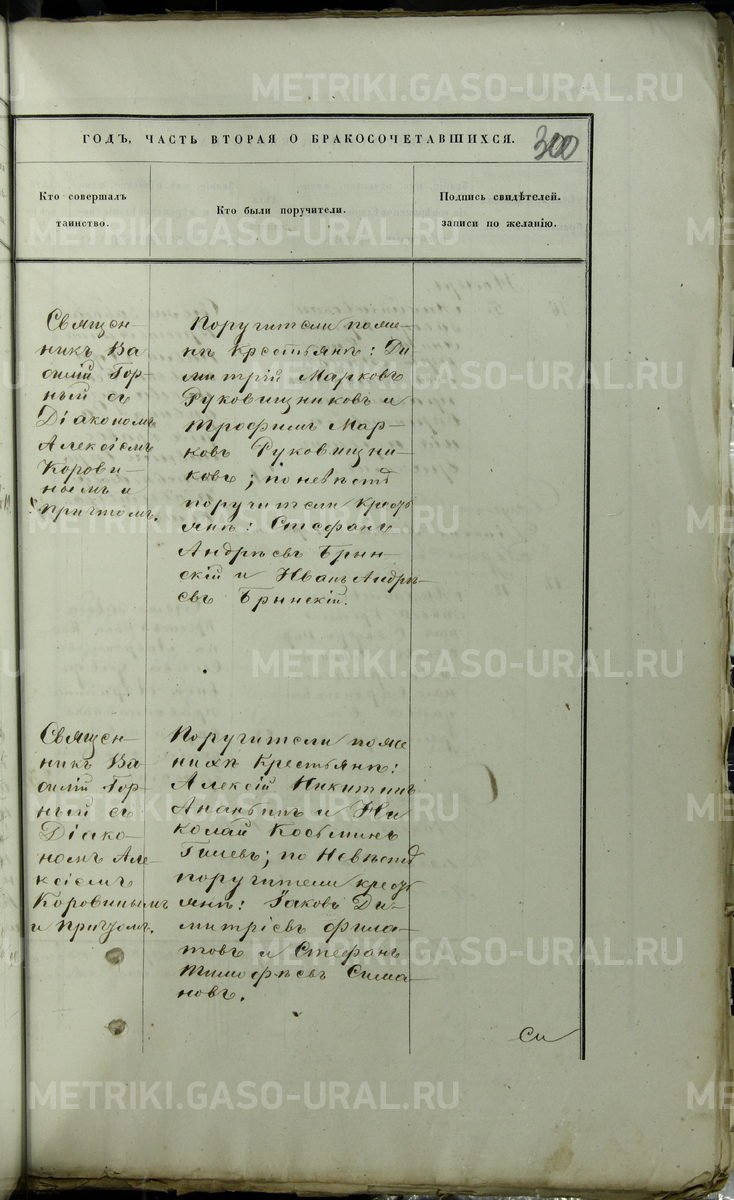 ГОДЪ, ЧАСТЬ ВТОРАЯ О БРАКОСОЧЕТАВШИХСЯ.
300
Кто совершалъ
таинство.
Кто были поручители.
Подпись свидѣтелей.
записи по желанію.
Священ-
никъ Ва
силій Гор-
ный съ
Діакономъ
Алексіемъ
Корови-
нымъ и
причтомъ.
Поручители по же-
нихѣ Крестьяне: Ди
митрій Марковъ
Руковишниковъ и
Трофимъ Мар-
ковъ Руковишни-
ковъ; по невѣстѣ
поручители кресть
яне: Стефанъ
Андрѣевъ Брын-
скій и Иванъ Андрѣ-
евъ Брынскій.
Священ-
никъ Ва
силій Гор-
ный съ
Діако-
номъ Але-
ксіемъ
Коровинымъ
и Причтомъ.
Поручители по же
нихѣ Крестьяне:
Алексій Никитинъ
Ананьинъ и Ни
колай Косьминъ
Гилевъ; по Невѣстѣ
поручители кресть
яне: Іаковъ Ди-
митріевъ Фила-
товъ и Стефанъ
Тимофѣевъ Сима-
новъ.
Си
METRIKI.GASO-URAL.RU